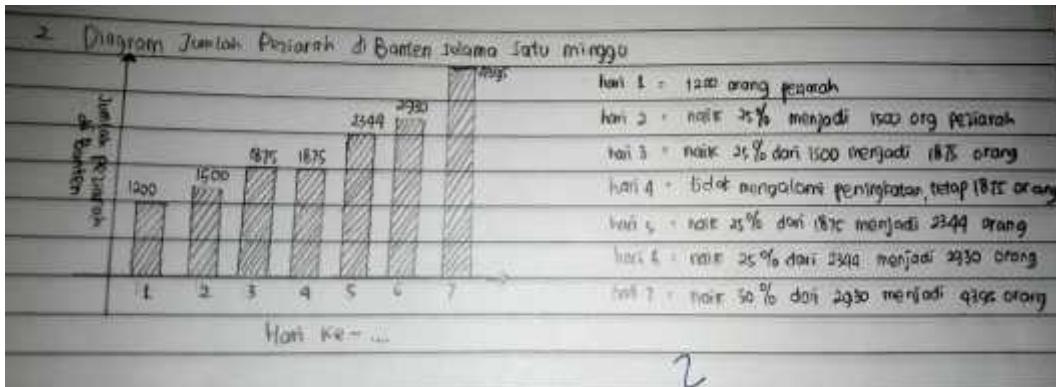 2 Diagram Jumlah Peziarah di Banten selama satu minggu
Jumlah peziarah
di Banten
1200
1500
1875
1875
2344
2930
4395
1
2
3
4
5
6
7
Hari ke - ...
hari 1 = 1200 orang peziarah
hari 2 = naik 25% menjadi 1500 org peziarah
hari 3 = naik 25% dari 1500 menjadi 1875 orang
hari 4 = tidak mengalami peningkatan, tetap 1875 orang
hari 5 = naik 25% dari 1875 menjadi 2344 orang
hari 6 = naik 25% dari 2344 menjadi 2930 orang
hari 7 = naik 50% dari 2930 menjadi 4395 orang
2